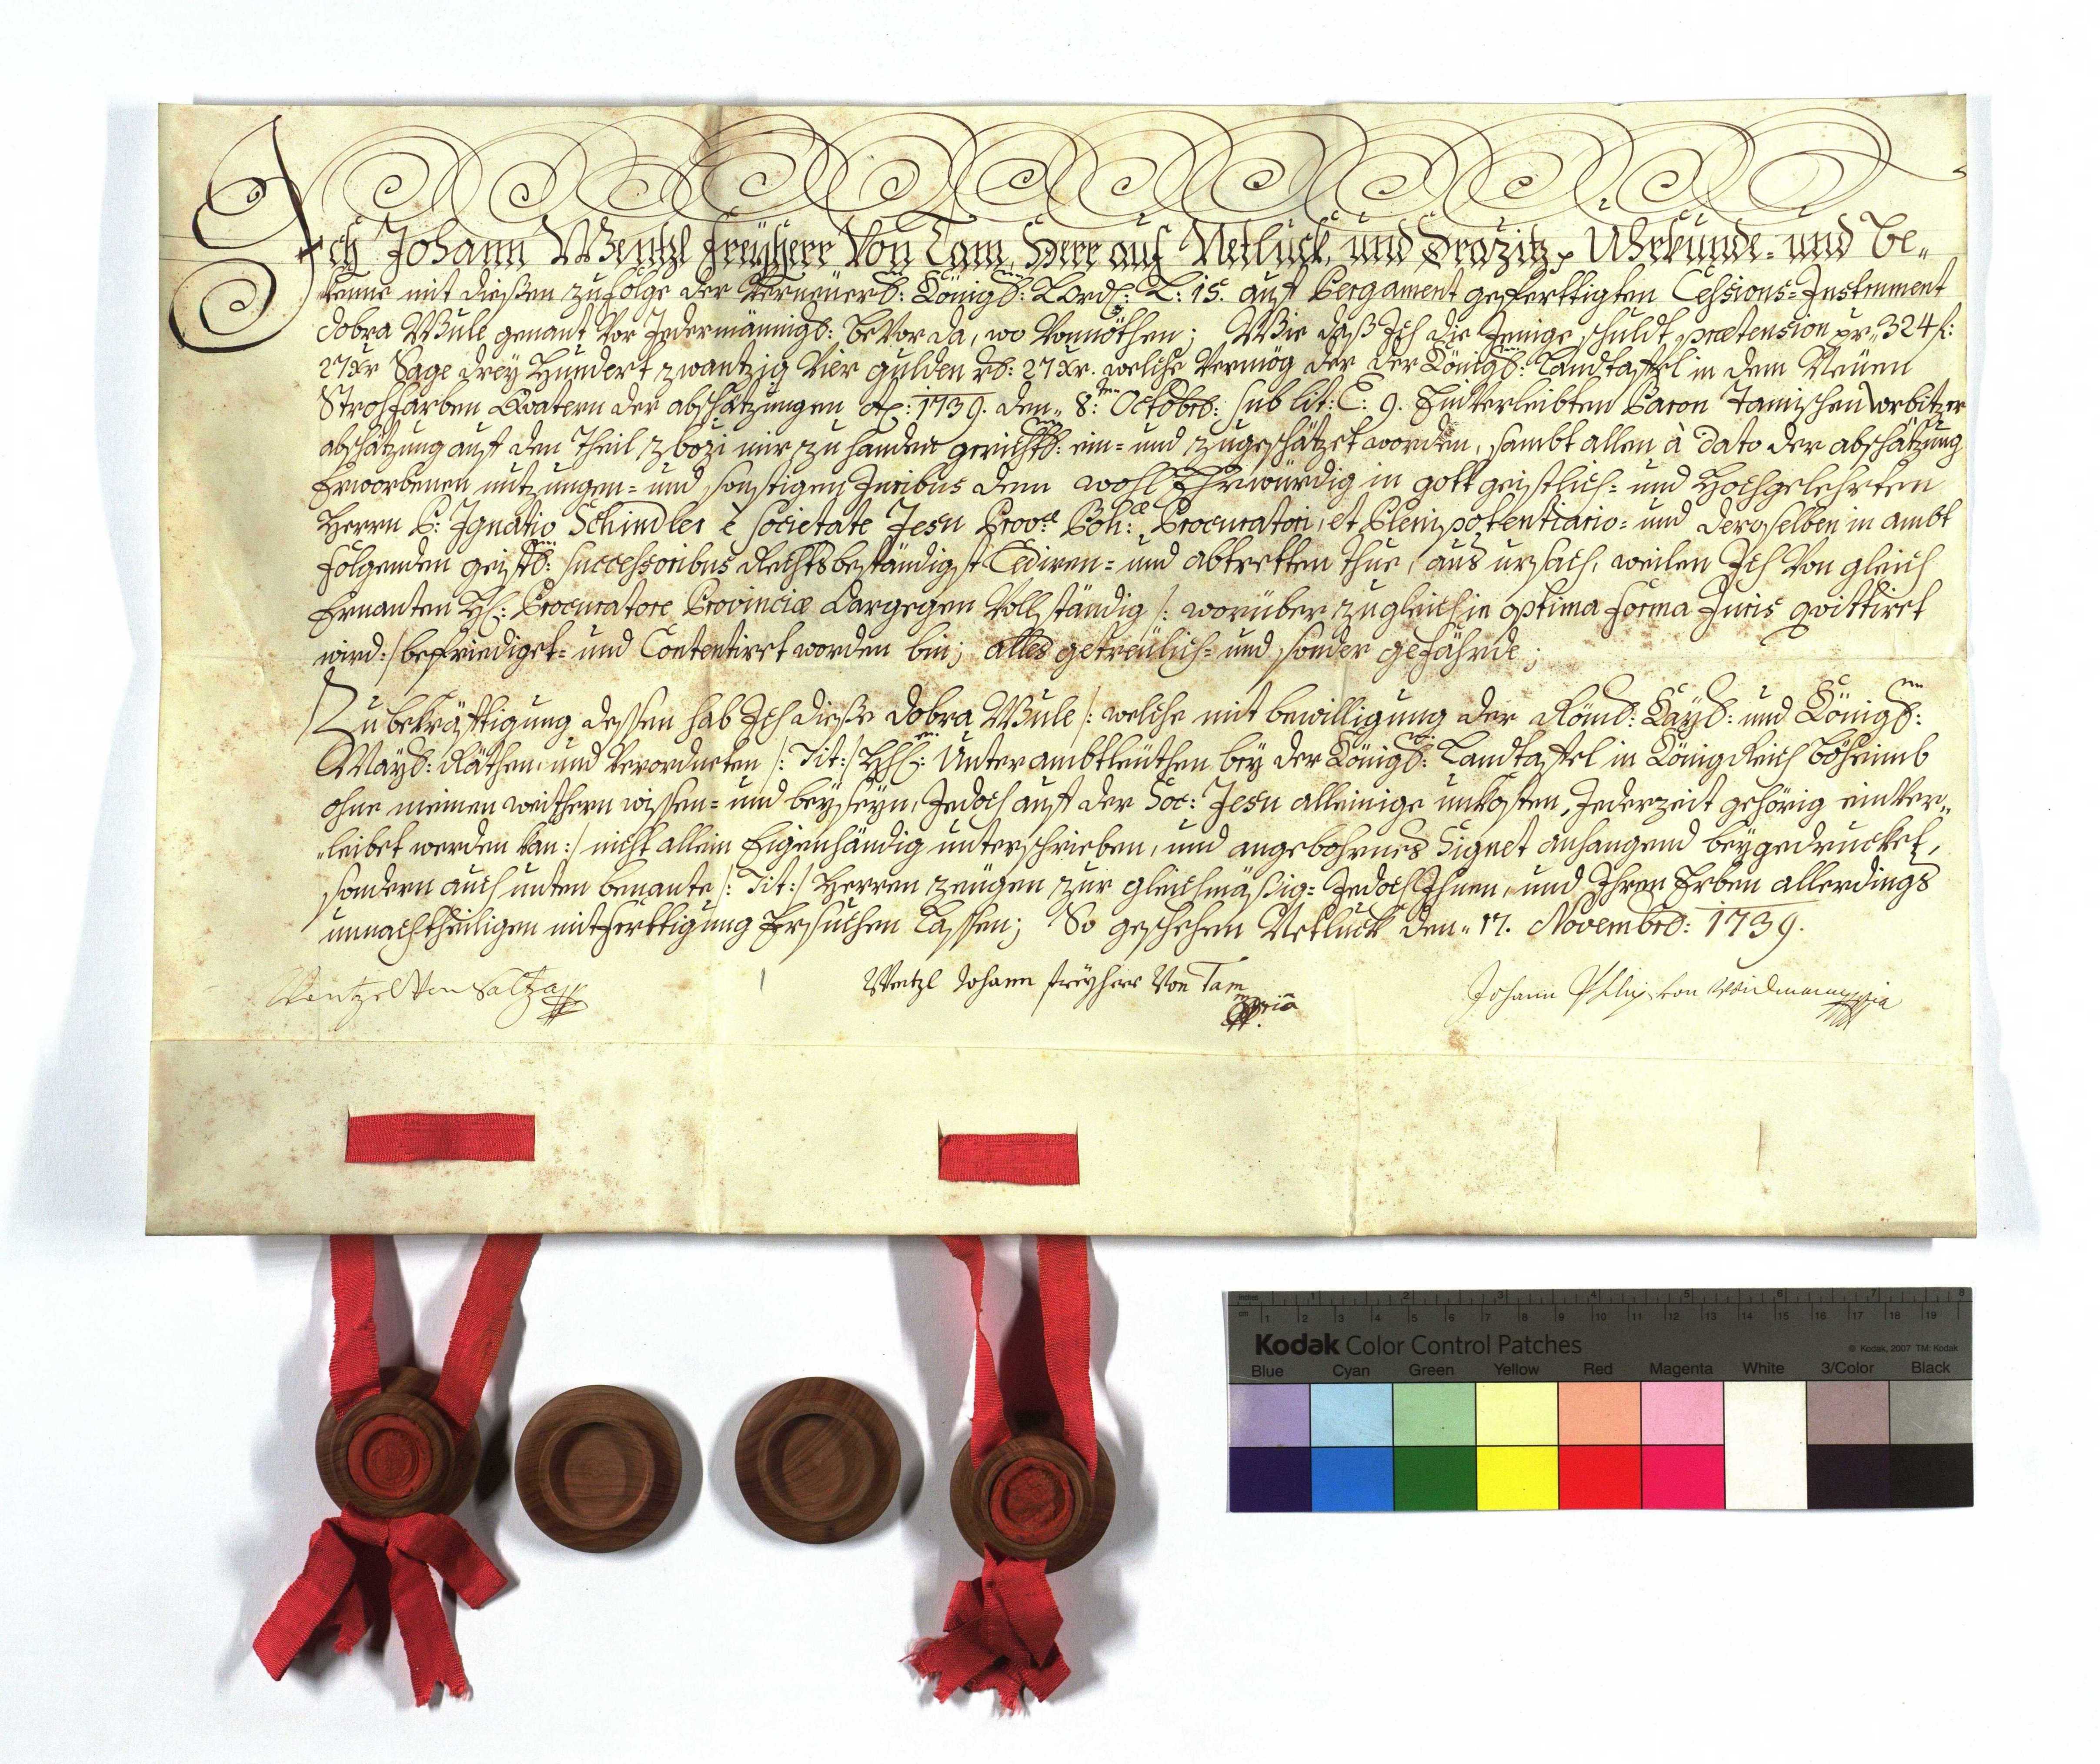 Ich Johann Wentzl Freyherr Von Tam, Herr auf Netluck, und Drazitz, Uhrkunde- und be-
kenne mit dießen zufolge der Verneuerd: Königl: LOrd: L: 15. auf Pergament geferttigten Cessions-Instrument
dobra Wule genant Vor Jedermännigl: beVor da, wo Vonnöthen; Wie daß Ich die Jenige schuldt, praetension pr. 324 f:
27 xr Sage drey Hundert zwantzig Vier gulden rh: 27 xr. welche Vermög der der Königl: Landtaffel in dem Neuen
Strohfarben Quatern der abschätzungen 1739. den 8: Octobr: sub lit: E: 9. Einverleibten Baron Tamischen Worbitzer
abschätzung auf den Theil zbozi mir zu handen gerichtl: ein- und zugeschätzet worden, sambt allen à dato der abschätzung
Erworbenen nutzungen- und sonstigen Juribus dem wohl Ehrwürdig in gott geistlich- und Hochgelehrten
Herrn P: Ignatio Schindler è Societate Jesu Prov: Boh: Procuratori, et Plenipotentiario- und deroselben in ambt
folgenden geistl: successoribus Rechtsbeständigst Cediren- und abtretten thue, aus ursach, weilen Ich Von gleich
Ernanten H: Procuratore Provinciæ dargegen Vollständig /: worüber zugleich in optima forma Juris quittiret
wird :/ befriediget- und Contentiret worden bin; alles getreulich- und sonder gefährde;
Zu bekräfftigung dessen hab Ich dieße dobra Wule /: welche mit bewilligung der Röml: Kayl: und Königl:
Mayl: Räthen und Verordneten /: Tit: / HH: Unterambtleuthen bey der Königl: Landtaffel in Königreich Böheimb
ohne meinen weithern wissen- und beyseyn, Jedoch auf der Soc: Jesu alleinige unkosten, Jederzeit gehörig einver-
leibet werden kan :/ nicht allein Eigenhändig unterschrieben, und angebohrnes Signet anhangend beygedrucket,
sondern auch unten benante /: Tit: / Herren zeugen zur gleichmäßig- Jedoch Ihnen, und Ihren Erben allerdings
unnachtheiligen mitferttigung Ersuchen Lassen; So geschehen Netluck den 17. Novembr: 1739.
Wentzel Von Saltza
Wentzl Johann freyherr Von Tam
Johann Philip von Weidmann
inches 1 2 3 4 5 6 7 8
cm 1 2 3 4 5 6 7 8 9 10 11 12 13 14 15 16 17 18 19
Kodak Color Control Patches © Kodak, 2007 TM: Kodak
Blue Cyan Green Yellow Red Magenta White 3/Color Black